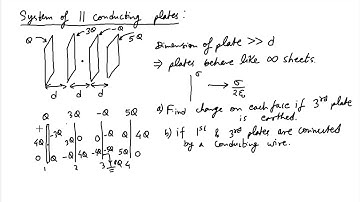 System of || conducting plates:
Q 3Q -Q 5Q
d d d
Dimension of plate >> d
⇒ plates behave like ∞ sheets.
σ → σ/2ε₀
a) Find charge on each face if 3rd plate
is earthed.
b) if 1st & 3rd plates are connected
by a conducting wire.
Q 3Q -Q 5Q
4Q -3Q 3Q 0 0 -Q Q 4Q
0 Q -Q 4Q -4Q
5Q 0
1 2 3 4